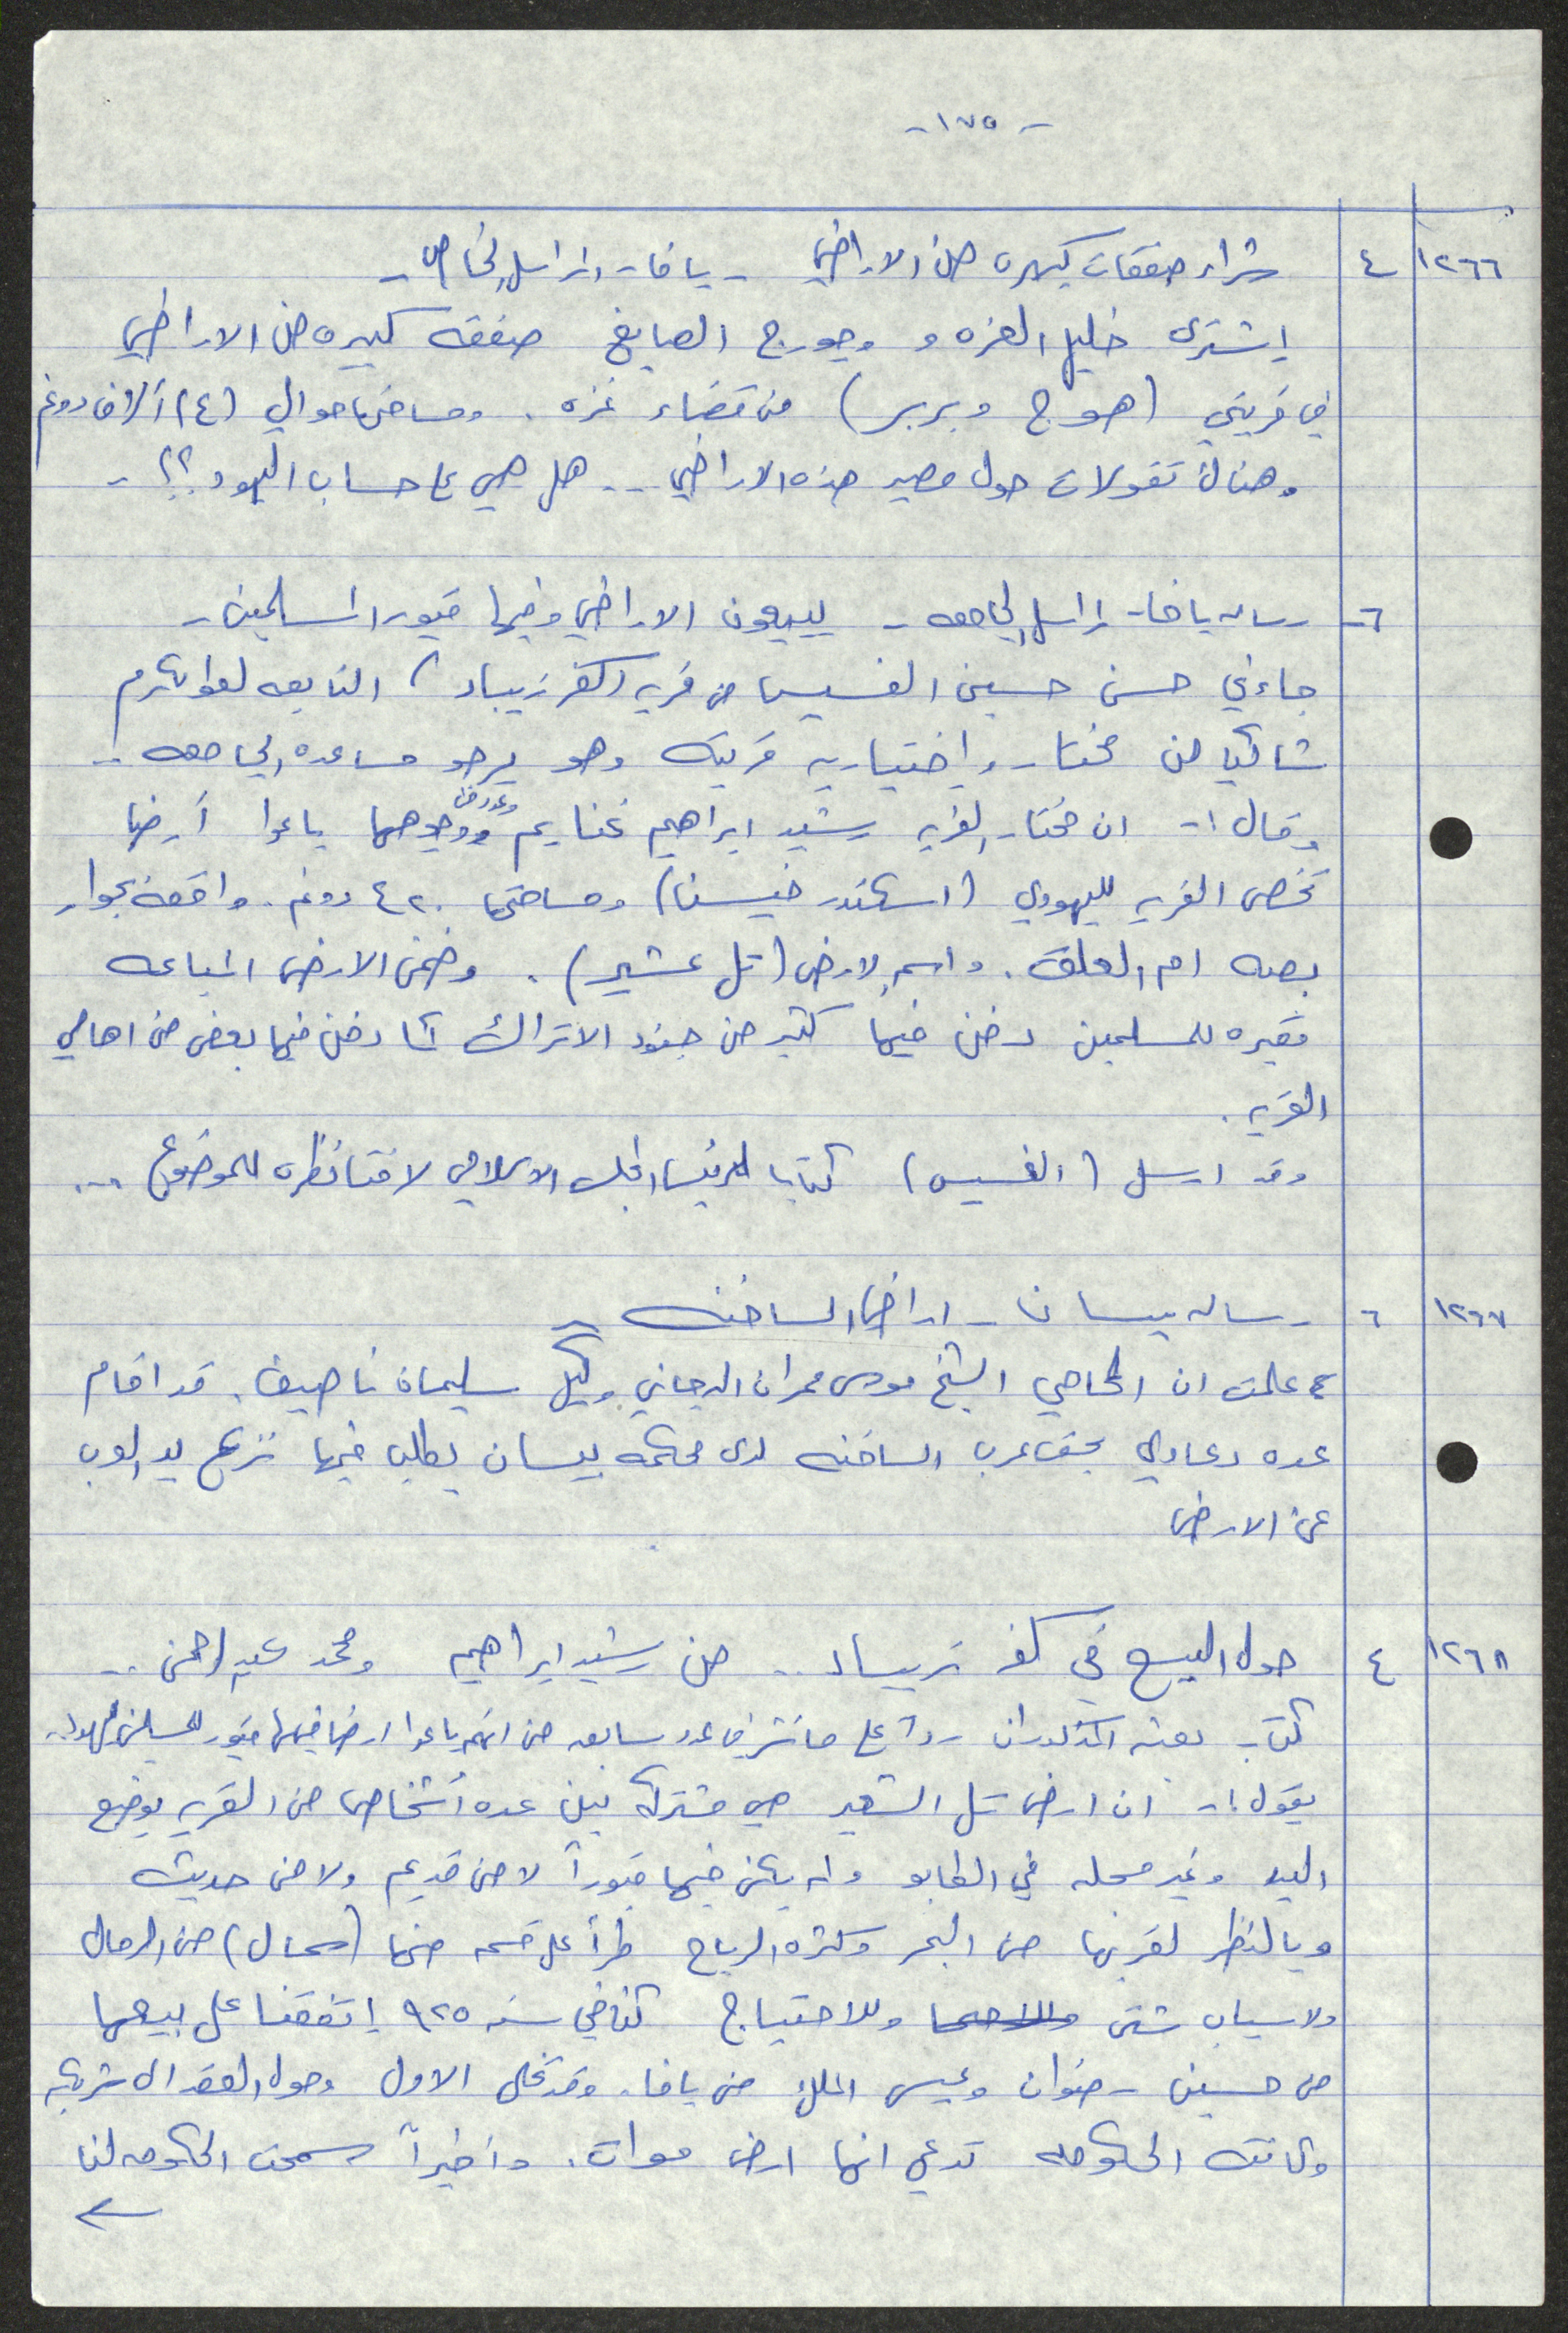 - ١٧٥ -
١٢٦٦ ٤ شراء صفقات كبيره من الاراضي - يافا - لمراسل الخاص -
اشترى خليل العزه و وجورج الصايغ صفقه كبيره من الاراضي
في قريتي (هوج وبربر) من قضاء غزه. ومساحتها حوالي (٤) آلاف دونم
وهناك تقولات حول مصير هذه الاراضي .. هل هي على حساب اليهود؟؟ -
٦ رساله يافا - لمراسل الجامعه - يبيعون الاراضي وفيها قبور المسلمين -
جاءني حسن حسين القسيس من قريه (كفر زيباد) التابعه لطولكرم
شاكيا من مختار واختياريه قريته وهو يرجو مساعده الجامعه ..
وقال :- ان مختار القريه رشيد ابراهيم غنايم وعدد من ووجوهها باعوا أرضا
تخص القريه لليهودي (اسكندر خيسنا) ومساحتها ٤٢٠ دونم. واقعه بجوار
بصه ام العلق. واسم الارض (تل عشير). وضمن الارض المباعه
مقبره للمسلمين دفن فيها كثير من جنود الاتراك كما دفن فيها بعض من اهالي
القريه.
وقد ارسل (القسيس) كتابا لرئيس المجلس الاسلامي لافتا نظره للموضوع ...
١٢٦٧ ٦ رساله بيسان - اراضي الساخنه -
علمت ان المحامي الشيخ موسى عمران الدجاني وكيل سليمان ناصيف. قد اقام
عده دعاوي بحق عرب الساخنه لدى محكمه بيسان يطلب فيها نزع يد العرب
عن الارض
١٢٦٨ ٤ حول البيع في كفر زيباد .. من رشيد ابراهيم ومحمد عبد الرحمن ..
كتاب بعثه المذكوران رداً على ما نشر في عدد سابق من انهم باعوا ارضا فيها قبور للمسلمين لليهود.
يقول :- ان ارض تل الشعير هي مشتركه بين عده أشخاص من القريه بوضع
اليد وغير مسجله في الطابو ولم يكن فيها قبوراً لا من قديم ولا من حديث
وبالنظر لقربها من البحر وكثره الرياح طرأ على قسم منها (سحال) من الرمال
ولاسباب شتى وللاحتياج كنا في سنه ٩٢٥ إتفقنا على بيعها
من حسين رضوان وعيسى الملك من يافا. وقد تخلى الاول وحول العقد الى شريكه
وكانت الحكومه تدعي انها ارض موات. واخيراً سمحت الحكومه لنا
←